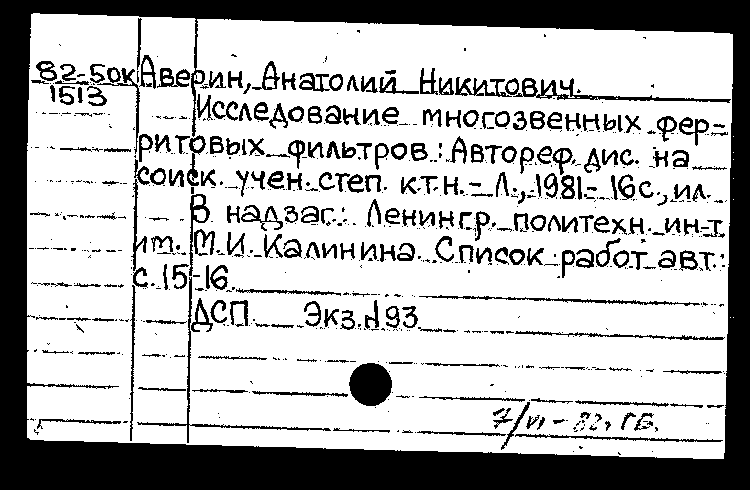 82-5ок Аверин, Анатолий Никитович.
1513
Исследование многозвенных фер-
ритовых фильтров: Автореф. дис. на
соиск. учен. степ. к.т.н. - Л., 1981. - 16 с., ил.
В надзаг.: Ленингр. политехн. ин-т
им. М.И. Калинина. Список работ авт.:
с. 15-16
ДСП Экз. №93
7/VI - 82. ГБ.